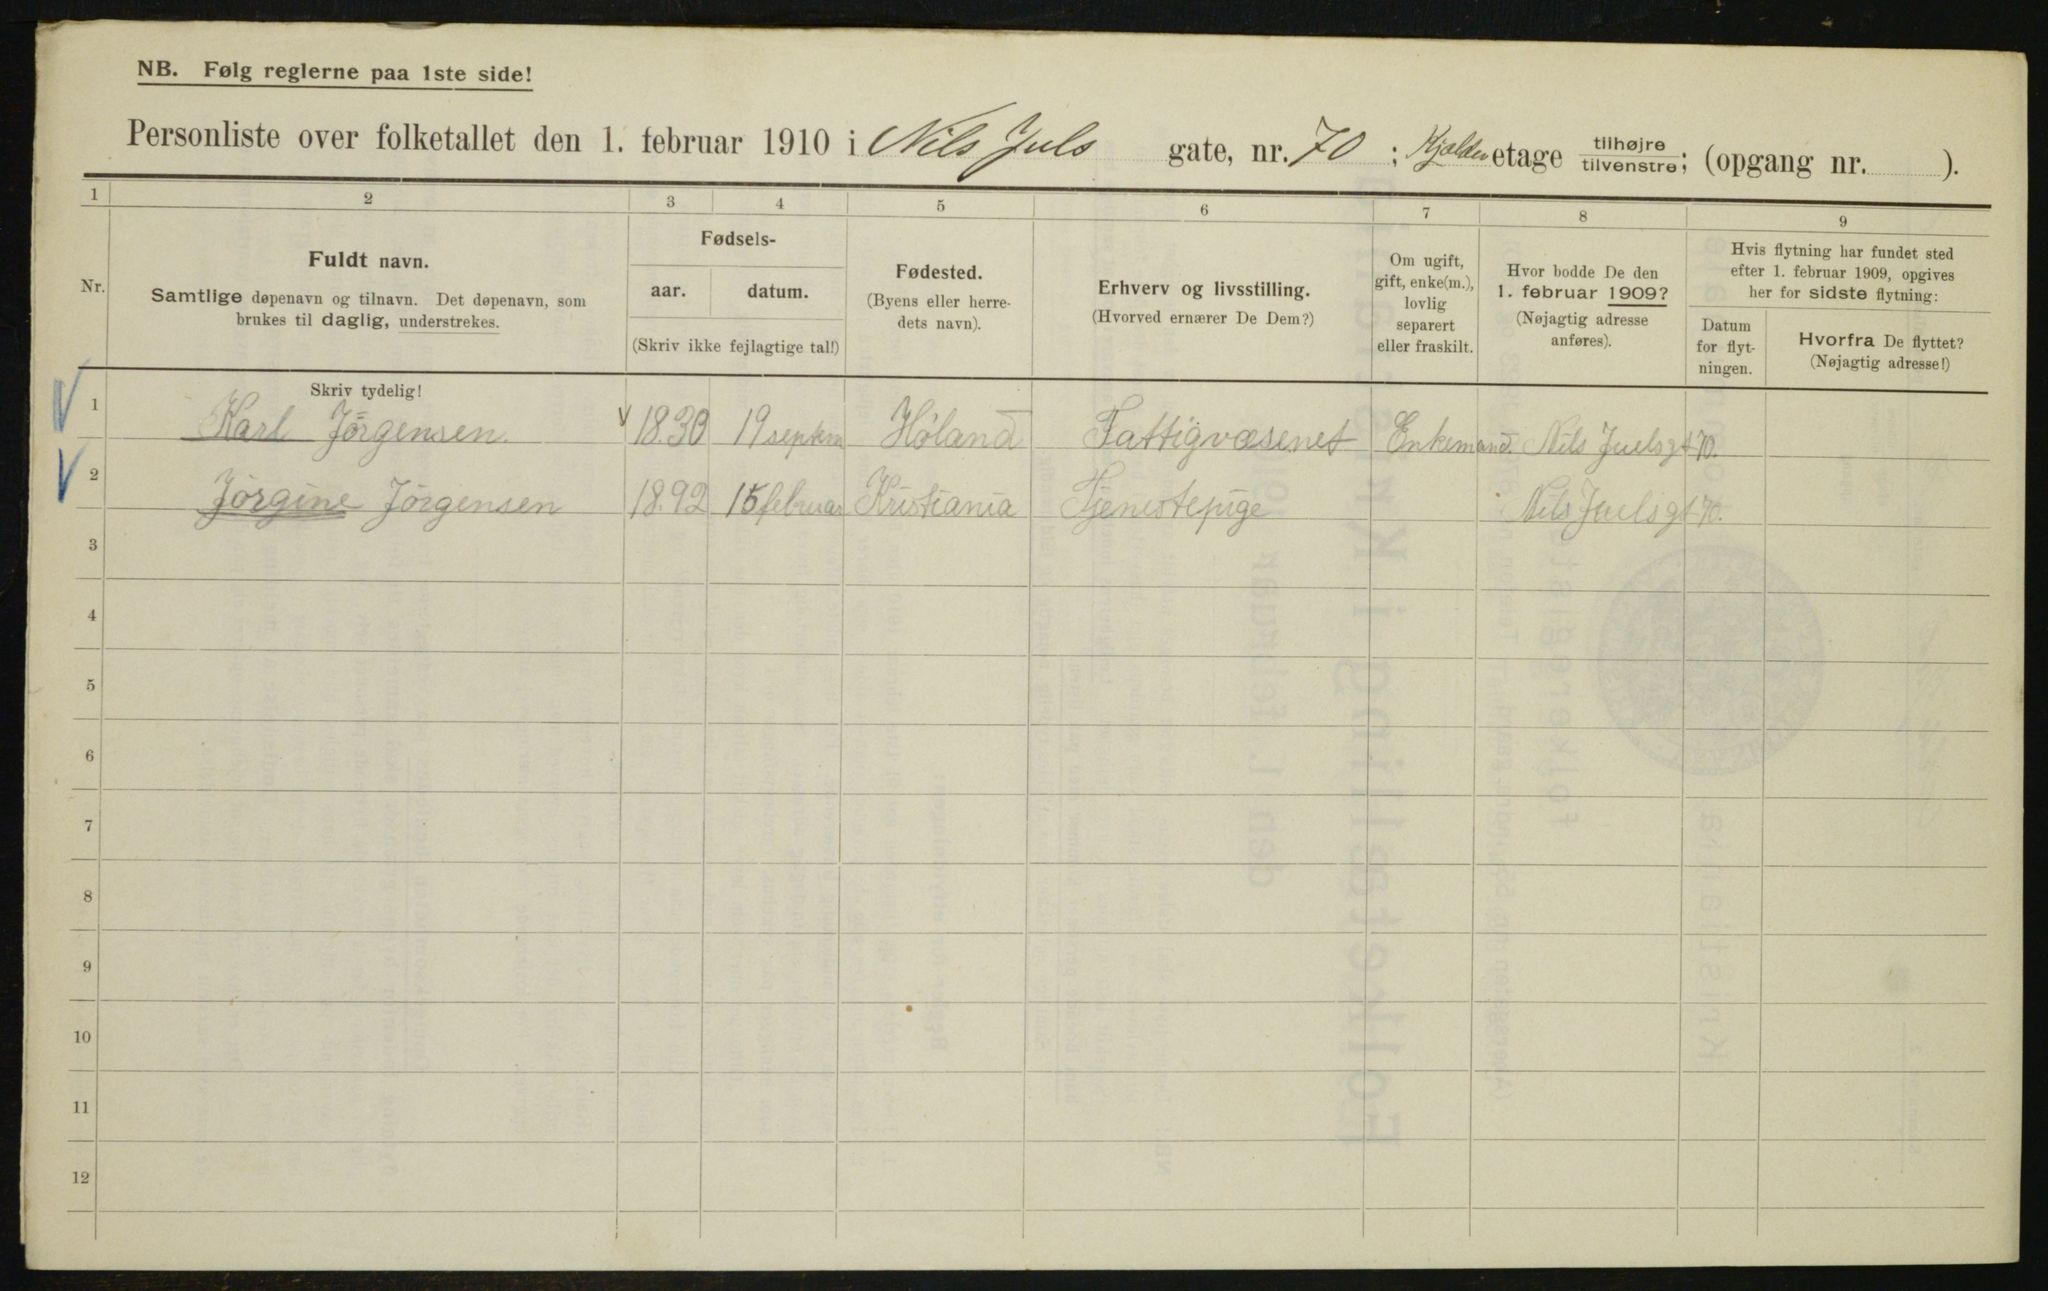 NB. Følg reglerne paa 1ste side!
Personliste over folketallet den 1. februar 1910 i Nils Juls gate, nr. 70 ; Kjælder etage tilhøjre / tilvenstre ; (opgang nr. ).
1 2 3 4 5 6 7 8 9
Nr.
Fuldt navn.
Samtlige døpenavn og tilnavn. Det døpenavn, som
brukes til daglig, understrekes.
Fødsels-
aar. datum.
(Skriv ikke fejlagtige tal!)
Fødested.
(Byens eller herre-
dets navn).
Erhverv og livsstilling.
(Hvorved ernærer De Dem?)
Om ugift,
gift, enke(m.),
lovlig
separert
eller fraskilt.
Hvor bodde De den
1. februar 1909?
(Nøjagtig adresse
anføres).
Hvis flytning har fundet sted
efter 1. februar 1909, opgives
her for sidste flytning:
Datum
for flyt-
ningen.
Hvorfra De flyttet?
(Nøjagtig adresse!)
Skriv tydelig!
1 Karl Jörgensen. 1830 19 septem Høland Fattigvæsenet Enkemand. Nils Juelsgt 70.
2 Jørgine Jørgensen 1892 15 februar Kristiania Tjenestepige Nils Juelsgt 70.
3
4
5
6
7
8
9
10
11
12